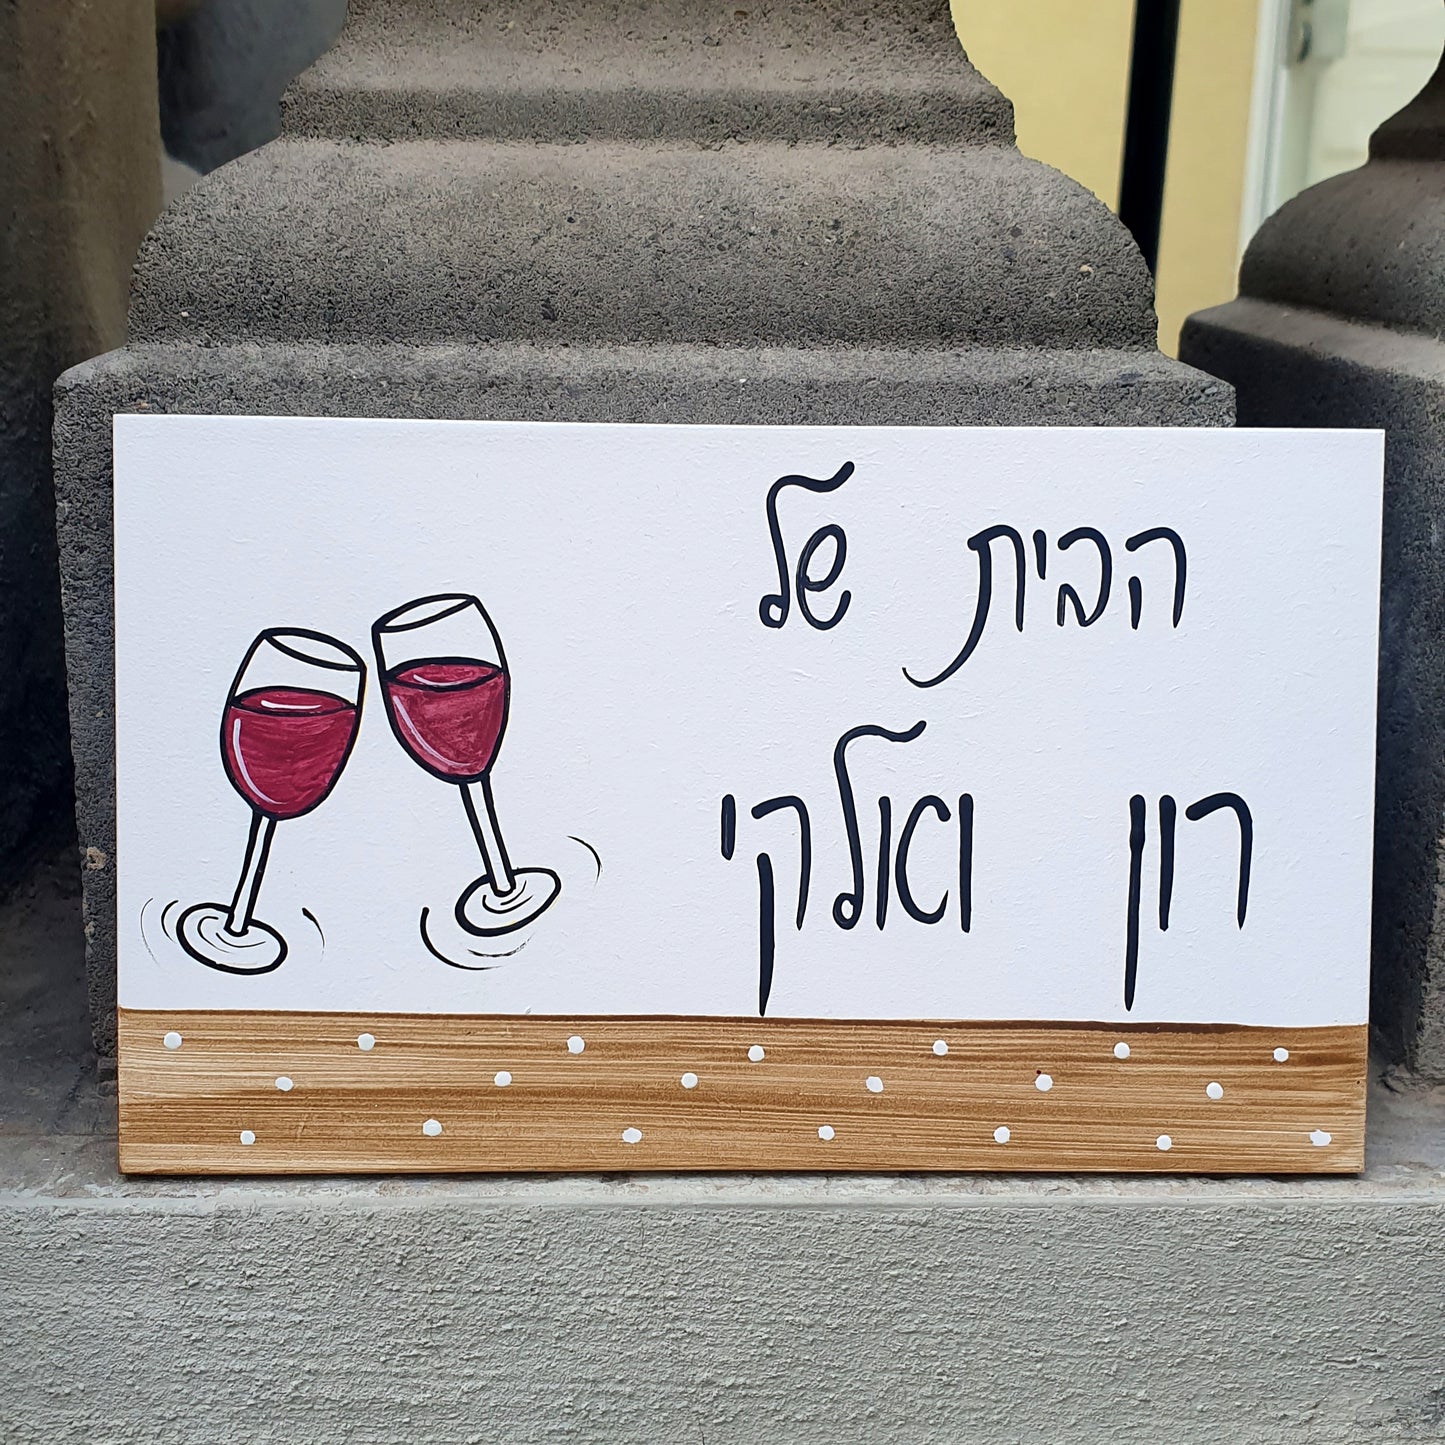 הבית של
רון ואולקי